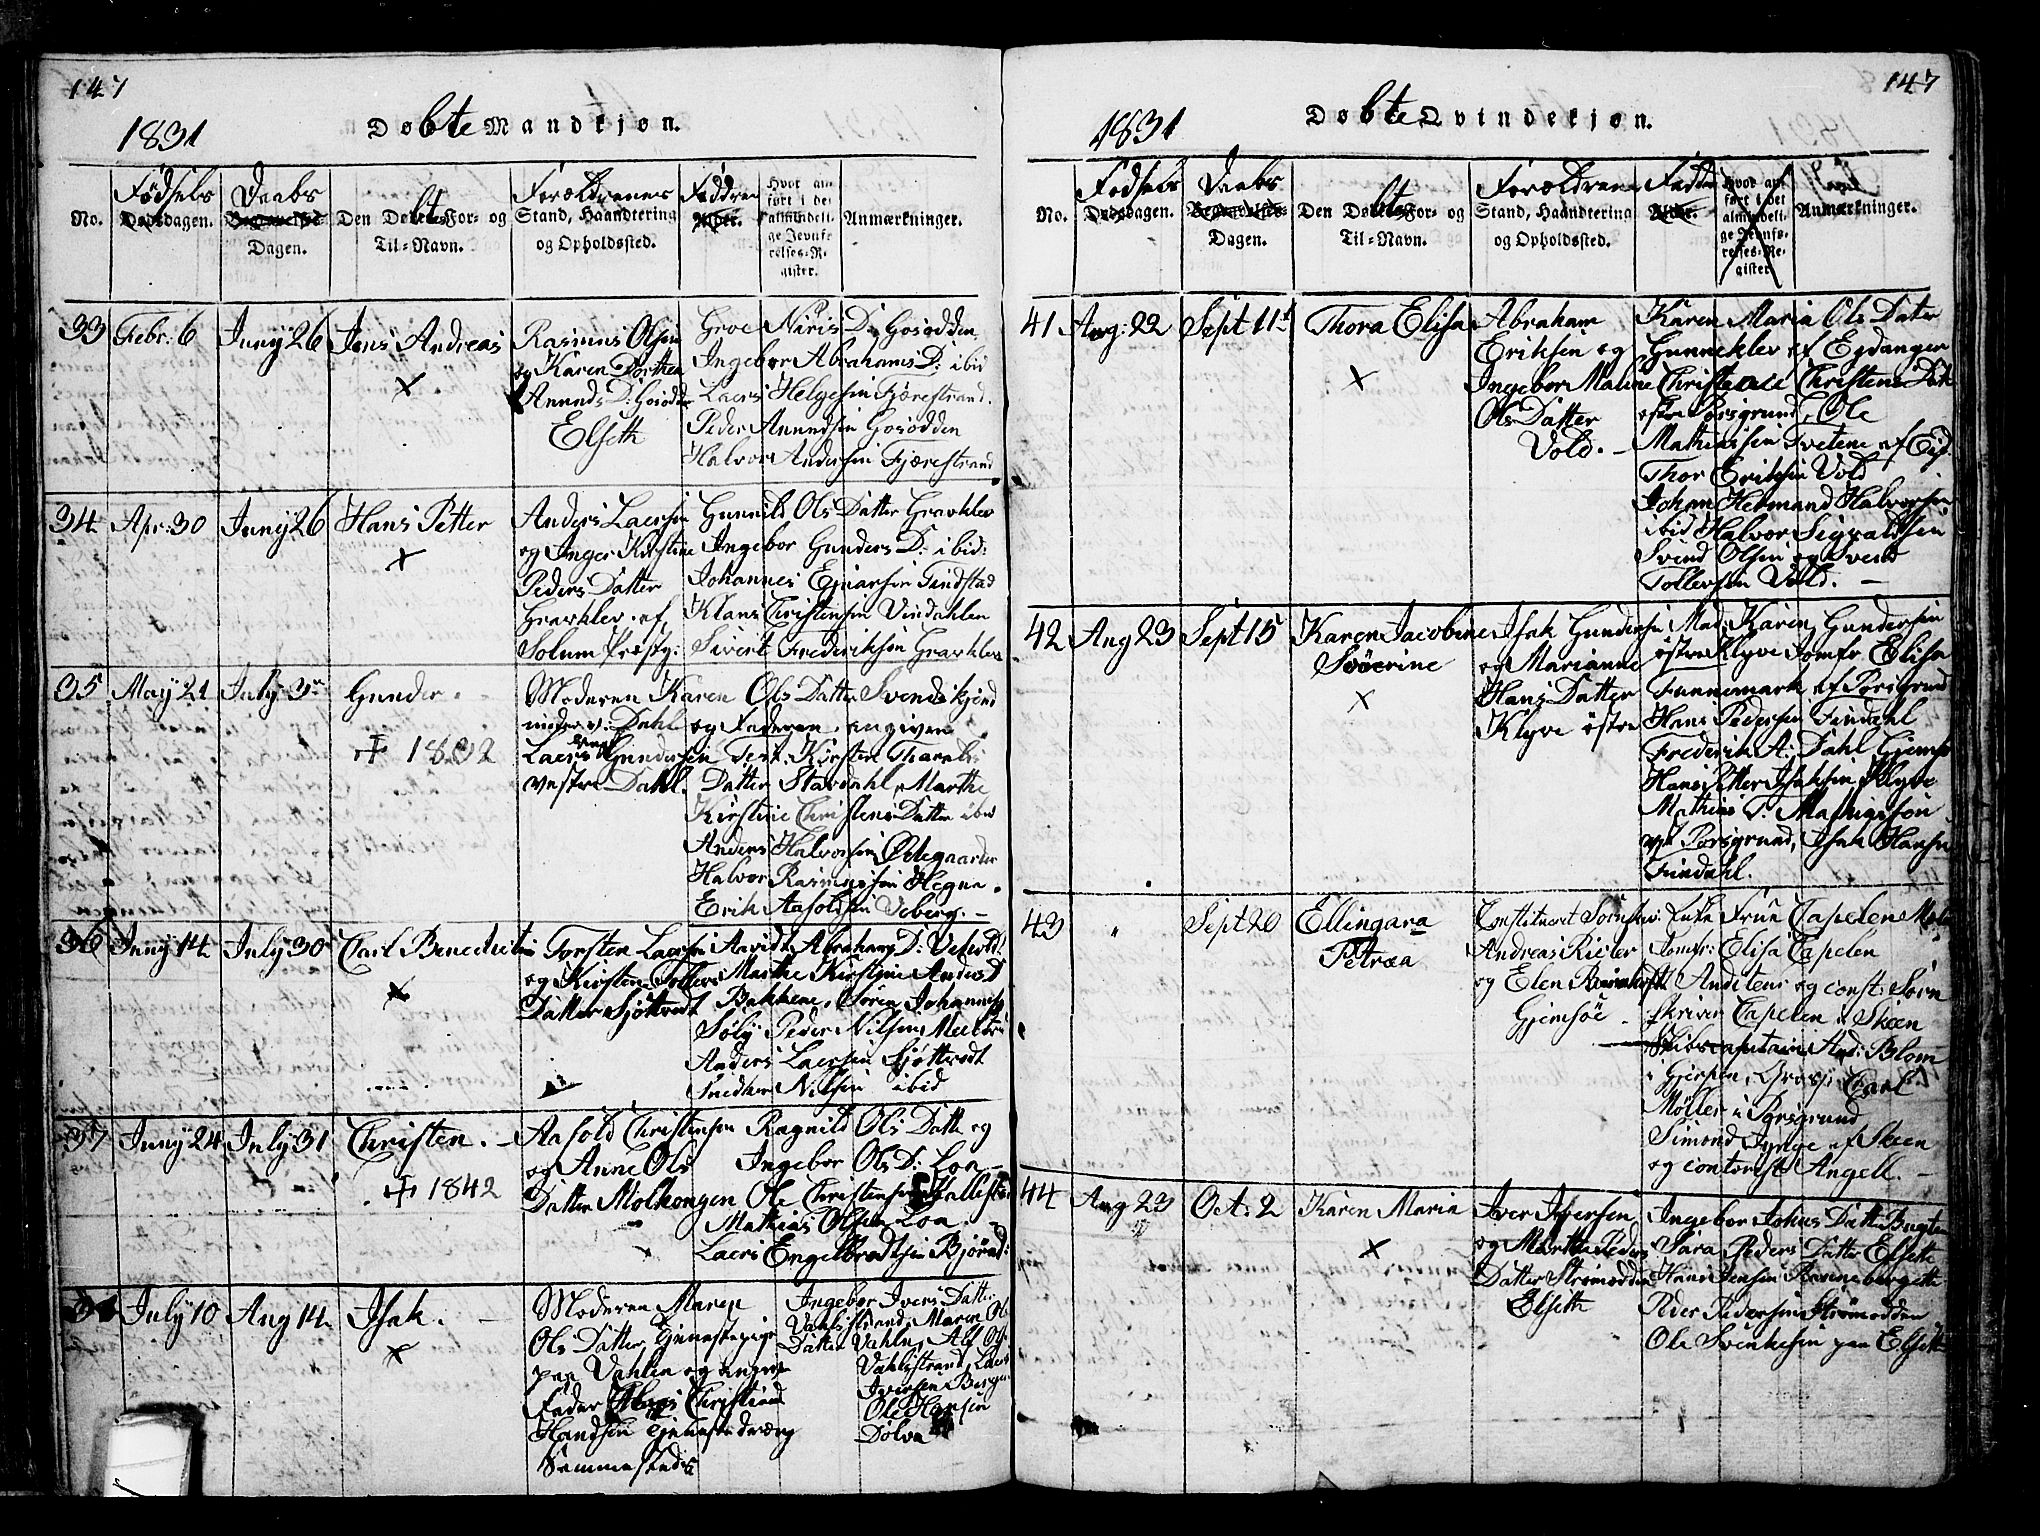 147
1831
Døbte Mandkjøn.
No.
Fødsels
Dødsdagen.
Daabs
Begravelses-
Dagen.
Den Døbtes For- og
Til-Navn.
Forældrenes
Stand, Haandtering
og Opholdssted.
Faddere
Alder.
Hvor an-
ført i det
almindeli-
ge Jevnfø-
relses-Re-
gister.
Anmærkninger.
33 Febr: 6 Juny 26 Jens Andreas
Rasmus Olsen
og Karen Dorthea
Annunds D:
Elseth
Groe Niris D:
Ingebor Abrahams D: ibid
Laers Helgesen Fjærestrand.
Peder Annundsen
Halvor Andersen Fjærestrand
34 Apr: 30 Juny 26 Hans Petter
Anders Laersen
og Inger Kirstine
Peders Datter
Gravklev af
Solum Præstg:
Gunnild Ols Datter Gravklev
Ingebor Gunders D: ibid:
Johannes Einarsen Findstad
Klaus Christensen Vindahlen
Sivert Frederiksen Gravklev
35 May 21 July 3 Gunder
+ 1832
Moderen Karen Ols Datter Svendskjend
under v: Dahl og Faderen angiven
Laers Gundersen Test. Kirsten Tharalds
vestre Dahl. Datter Stavdahl, Marthe
Kirstine Christens Datter ibid
Anders Halvorsen Ødegaarden
Halvor Rasmussen Hegna
Erik Aasoldsen Veberg. —
36 Juny 14 July 30 Carl Benedictus
Torsten Laersen
og Kirsten Tollevs
Datter Sjøttvedt
Abrahams D:
Marthe Kirstine Anders D
Bakkene, Søren Johannes
Peder Nilsen
Anders Laersen Sjøttvedt
Nilsen ibid
37 Juny 24 July 31 Christen. —
+ 1842
Aasold Christensen
og Anne Ols
Datter Molhougen
Ragnild Ols Datter og
Ingebor Ols D: Loa —
Ole Christensen
Mathias Olsen Loa.
Laers Engelbredtsen
38 July 10 Aug 14 Isak. —
Moderen Maren
Ols Datter, Tjenestepige
paa Vahlen og angiven
Fader Christian
Handsen Tjenestedreng
Ingebor Ivers Datter
Vahlstrand, Maren Ols
Datter Vahlen,
Vahlstrand, Laers
Iversen Berge
Ole Hansen
Dolva
147
1831
Døbte Qvindekjøn.
No.
Fødsels
Dødsdagen.
Daabs
Begravelses-
Dagen.
Den Døbtes For- og
Til-Navn.
Forældrenes
Stand, Haandtering
og Opholdssted.
Fadder
Alder.
Hvor an-
ført i det
almindeli-
ge Jevnfø-
relses-Re-
gister.
Anmærkninger.
41 Aug: 22 Sept 11 Thora Elisa
Abraham
Eriksen og
Ingebor Malene
Ols Datter
Vold. —
Karen Maria Ols Datter
Gunneklev af Eidanger
Christense Christens Datter
østre Porsgrund, Ole
Mathiassen Tvetene af Eid
Thor Eriksen Vold
Johan Hermand Halvorsen
ibid Halvor Sigvaldsen
Svend Olsen og Svend
Tollevsen Vold. —
42 Aug 23 Sept 15 Karen Jacobine
Severine
Isak Gundersen
og Marianne
Hans Datter
Klyve østre
Mad: Karen Gundersen
østre Klyve Jomfr Elisa
Funnemark af Porsgrund
Hans Pedersen Findahl
Frederik A: Dahl Gjemsø
Hans Petter Isaksen Klyve
Mathias T. Mathiassen
vest Porsgrund, Isak Hansen
Findahl.
43 " Sept 20 Ellingara
Petræa
Constitueret Sorenskr:
Andreas Rieber
og Elen
Gjemsøe —
Frue Capelen
Jomfr: Elisa Capelen
Auditeur og const: Soren
skriver Capelen i Skeen
Skibscapitain And: Blom
i Gjerpen, Carl
Møller i Porsgrund
Simond af Skeen
og contorist Angell. —
44 Aug 23 Oct: 2 Karen Maria
Iver Iversen
og Marthe Peders
Datter Strømodden
Elseth
Ingebor Johns Datter
Sara Peders Datter Elseth
Hans Jensen
Peder Pedersen Strømodden
Ole Svenkesen paa Elseth